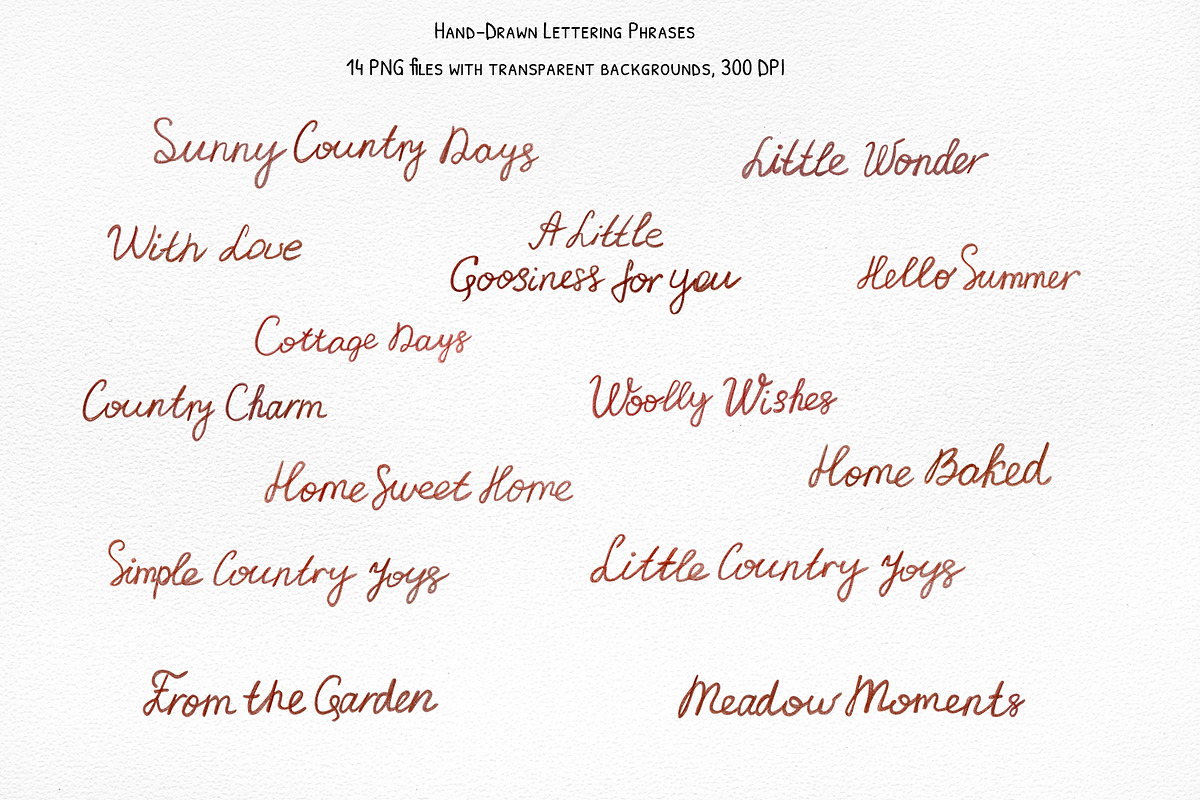 Hand-Drawn Lettering Phrases
14 PNG files with transparent backgrounds, 300 DPI
Sunny Country Days
Little Wonder
With Love
A Little
Goosiness for you
Hello Summer
Cottage Days
Country Charm
Woolly Wishes
Home Sweet Home
Home Baked
Simple Country Joys
Little Country Joys
From the Garden
Meadow Moments